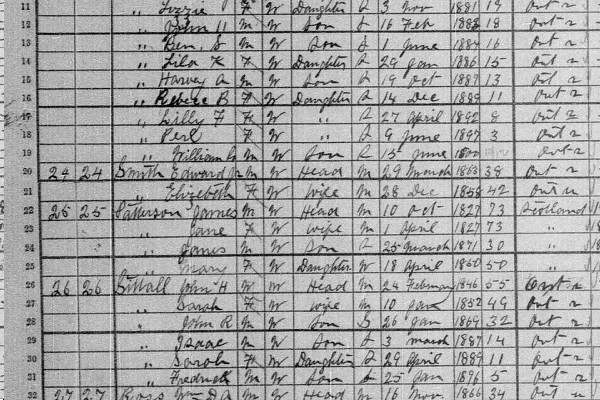 11 " Lizzie F W Daughter S 3 Nov 1881 19 Out r
12 " John H M W Son S 16 Feb 1883 18 Out r
13 " Ben. S M W Son S 1 June 1884 16 Out r
14 " Lila K F W Daughter S 29 Jan 1886 15 Out r
15 " Harvey A M W Son S 19 Oct 1887 13 Out r
16 " B F W Daughter S 14 Dec 1889 11 Out r
17 " Lilly F F W " S 27 April 1892 8 Out r
18 " Perl F W " S 9 June 1897 3 Out r
19 " William M W Son S 15 June Out r
20 24 24 Smith Edward M W Head M 29 March 1863 38 Out r
21 " Elizabeth F W Wife M 28 Dec 1858 42 Out u
22 25 25 Patterson James M W Head M 10 Oct 1827 73 Scotland
23 " Jane F W Wife M 1 April 1827 73 "
24 " James M W Son S 25 March 1871 30 "
25 " Mary F W Daughter S 18 April 1850 50 "
26 26 26 John H M W Head M 24 February 1846 55 Out r
27 " Sarah F W Wife M 10 Jan 1852 49 Out r
28 " John R M W Son S 26 Jan 1869 32 Out r
29 " Isaac M W Son S 3 March 1887 14 Out r
30 " Sarah F W Daughter S 29 April 1889 11 Out r
31 " Fredrick M W Son S 25 Jan 1896 5 Out r
32 27 27 Ross Wm D A M W Head M 16 Nov 1866 34 Out u